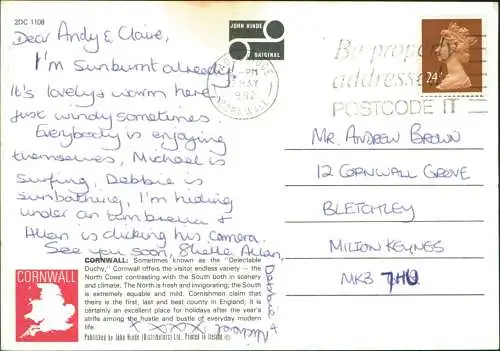 2DC 1108
Dear Andy & Claire,
I'm sunburnt already.
It's lovely & warm here
just windy sometimes.
Everybody is enjoying
themselves, Michael is
surfing, Debbie is
sunbathing, I'm hiding
under an umbrella &
Allan is clicking his camera.
See you soon, Shelle, Allan,
Debbie &
Michael xxxx
CORNWALL
CORNWALL: Sometimes known as the "Delectable
Duchy," Cornwall offers the visitor endless variety — the
North Coast contrasting with the South both in scenery
and climate. The North is fresh and invigorating; the South
is extremely equable and mild. Cornishmen claim that
theirs is the first, last and best county in England; it is
certainly an excellent place for holidays after the year's
strife among the hustle and bustle of everyday modern
life.
Published by John Hinde (Distributors) Ltd. Printed in Ireland
JOHN HINDE
ORIGINAL
PM
MAY
CORNWALL
Be properly
addressed
POSTCODE IT
24
MR. ANDREW BROWN
12 CORNWALL GROVE
BLETCHLEY
MILTON KEYNES
MK3 7HU